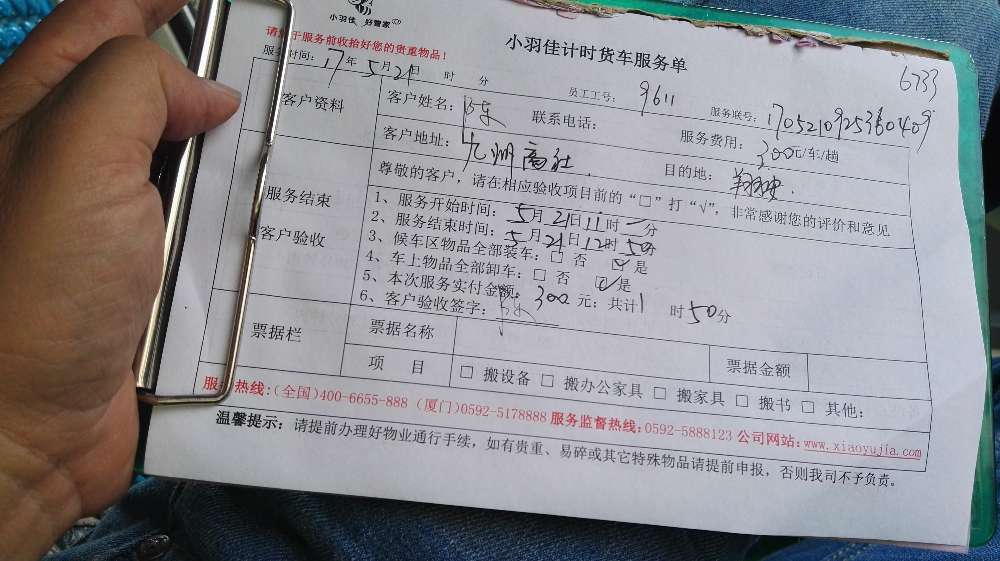 小羽佳 好管家
小羽佳计时货车服务单
请您于服务前收拾好您的贵重物品!
6733
服务时间: 17年 5月21日 时 分 员工工号: 9611 服务联号: 1705210925360409
客户资料
客户姓名: 陈 联系电话: 服务费用: 300元/车/趟
客户地址: 九州商社 目的地:
服务结束
客户验收
尊敬的客户，请在相应验收项目前的“□”打“√”，非常感谢您的评价和意见
1、服务开始时间: 5月21日11时 分
2、服务结束时间: 5月21日12时50分
3、候车区物品全部装车: □ 否 ☑ 是
4、车上物品全部卸车: □ 否 ☑ 是
5、本次服务实付金额: 300 元; 共计1 时50分
6、客户验收签字: 陈
票据栏 票据名称 票据金额
项 目 □ 搬设备 □ 搬办公家具 □ 搬家具 □ 搬书 □ 其他:
服务热线:(全国)400-6655-888 (厦门)0592-5178888 服务监督热线:0592-5888123 公司网站:www.xiaoyujia.com
温馨提示: 请提前办理好物业通行手续，如有贵重、易碎或其它特殊物品请提前申报，否则我司不予负责。